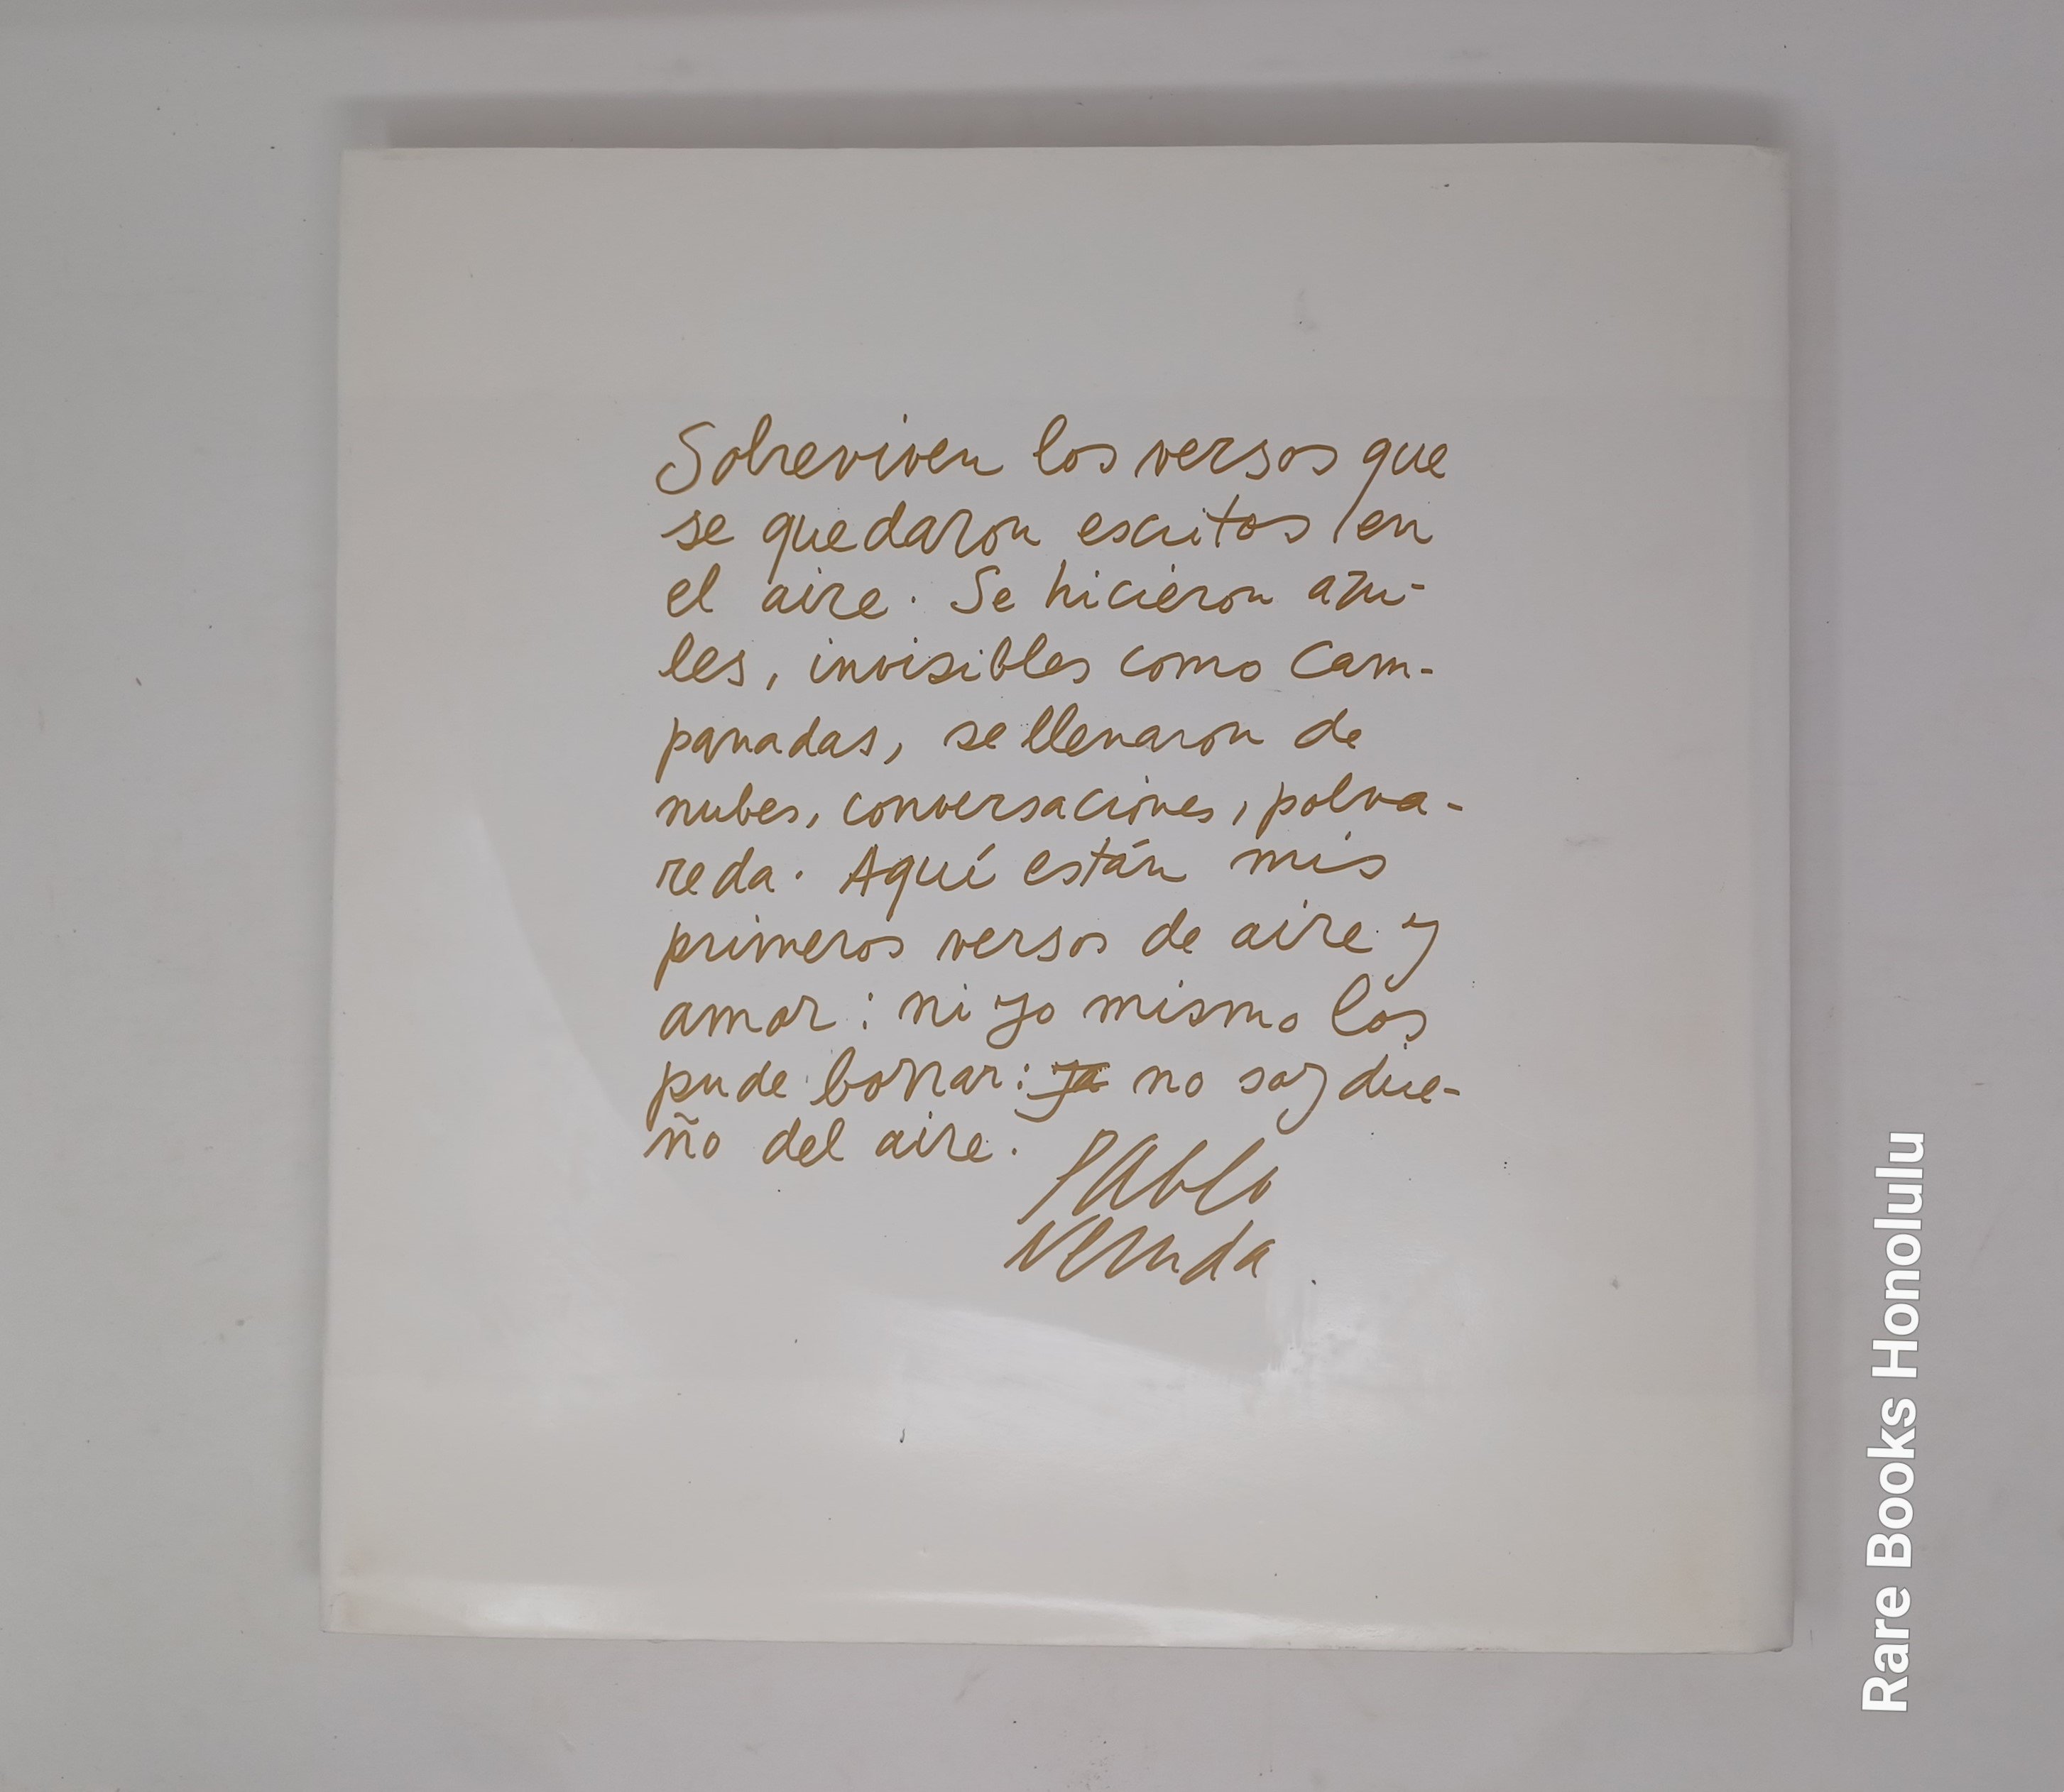 Sobreviven los versos que
se quedaron escritos en
el aire. Se hicieron azu-
les, invisibles como cam-
panadas, se llenaron de
nubes, conversaciones, polva-
reda. Aquí están mis
primeros versos de aire y
amor: ni yo mismo los
pude borrar: ya no soy due-
ño del aire.
Pablo
Neruda
Rare Books Honolulu